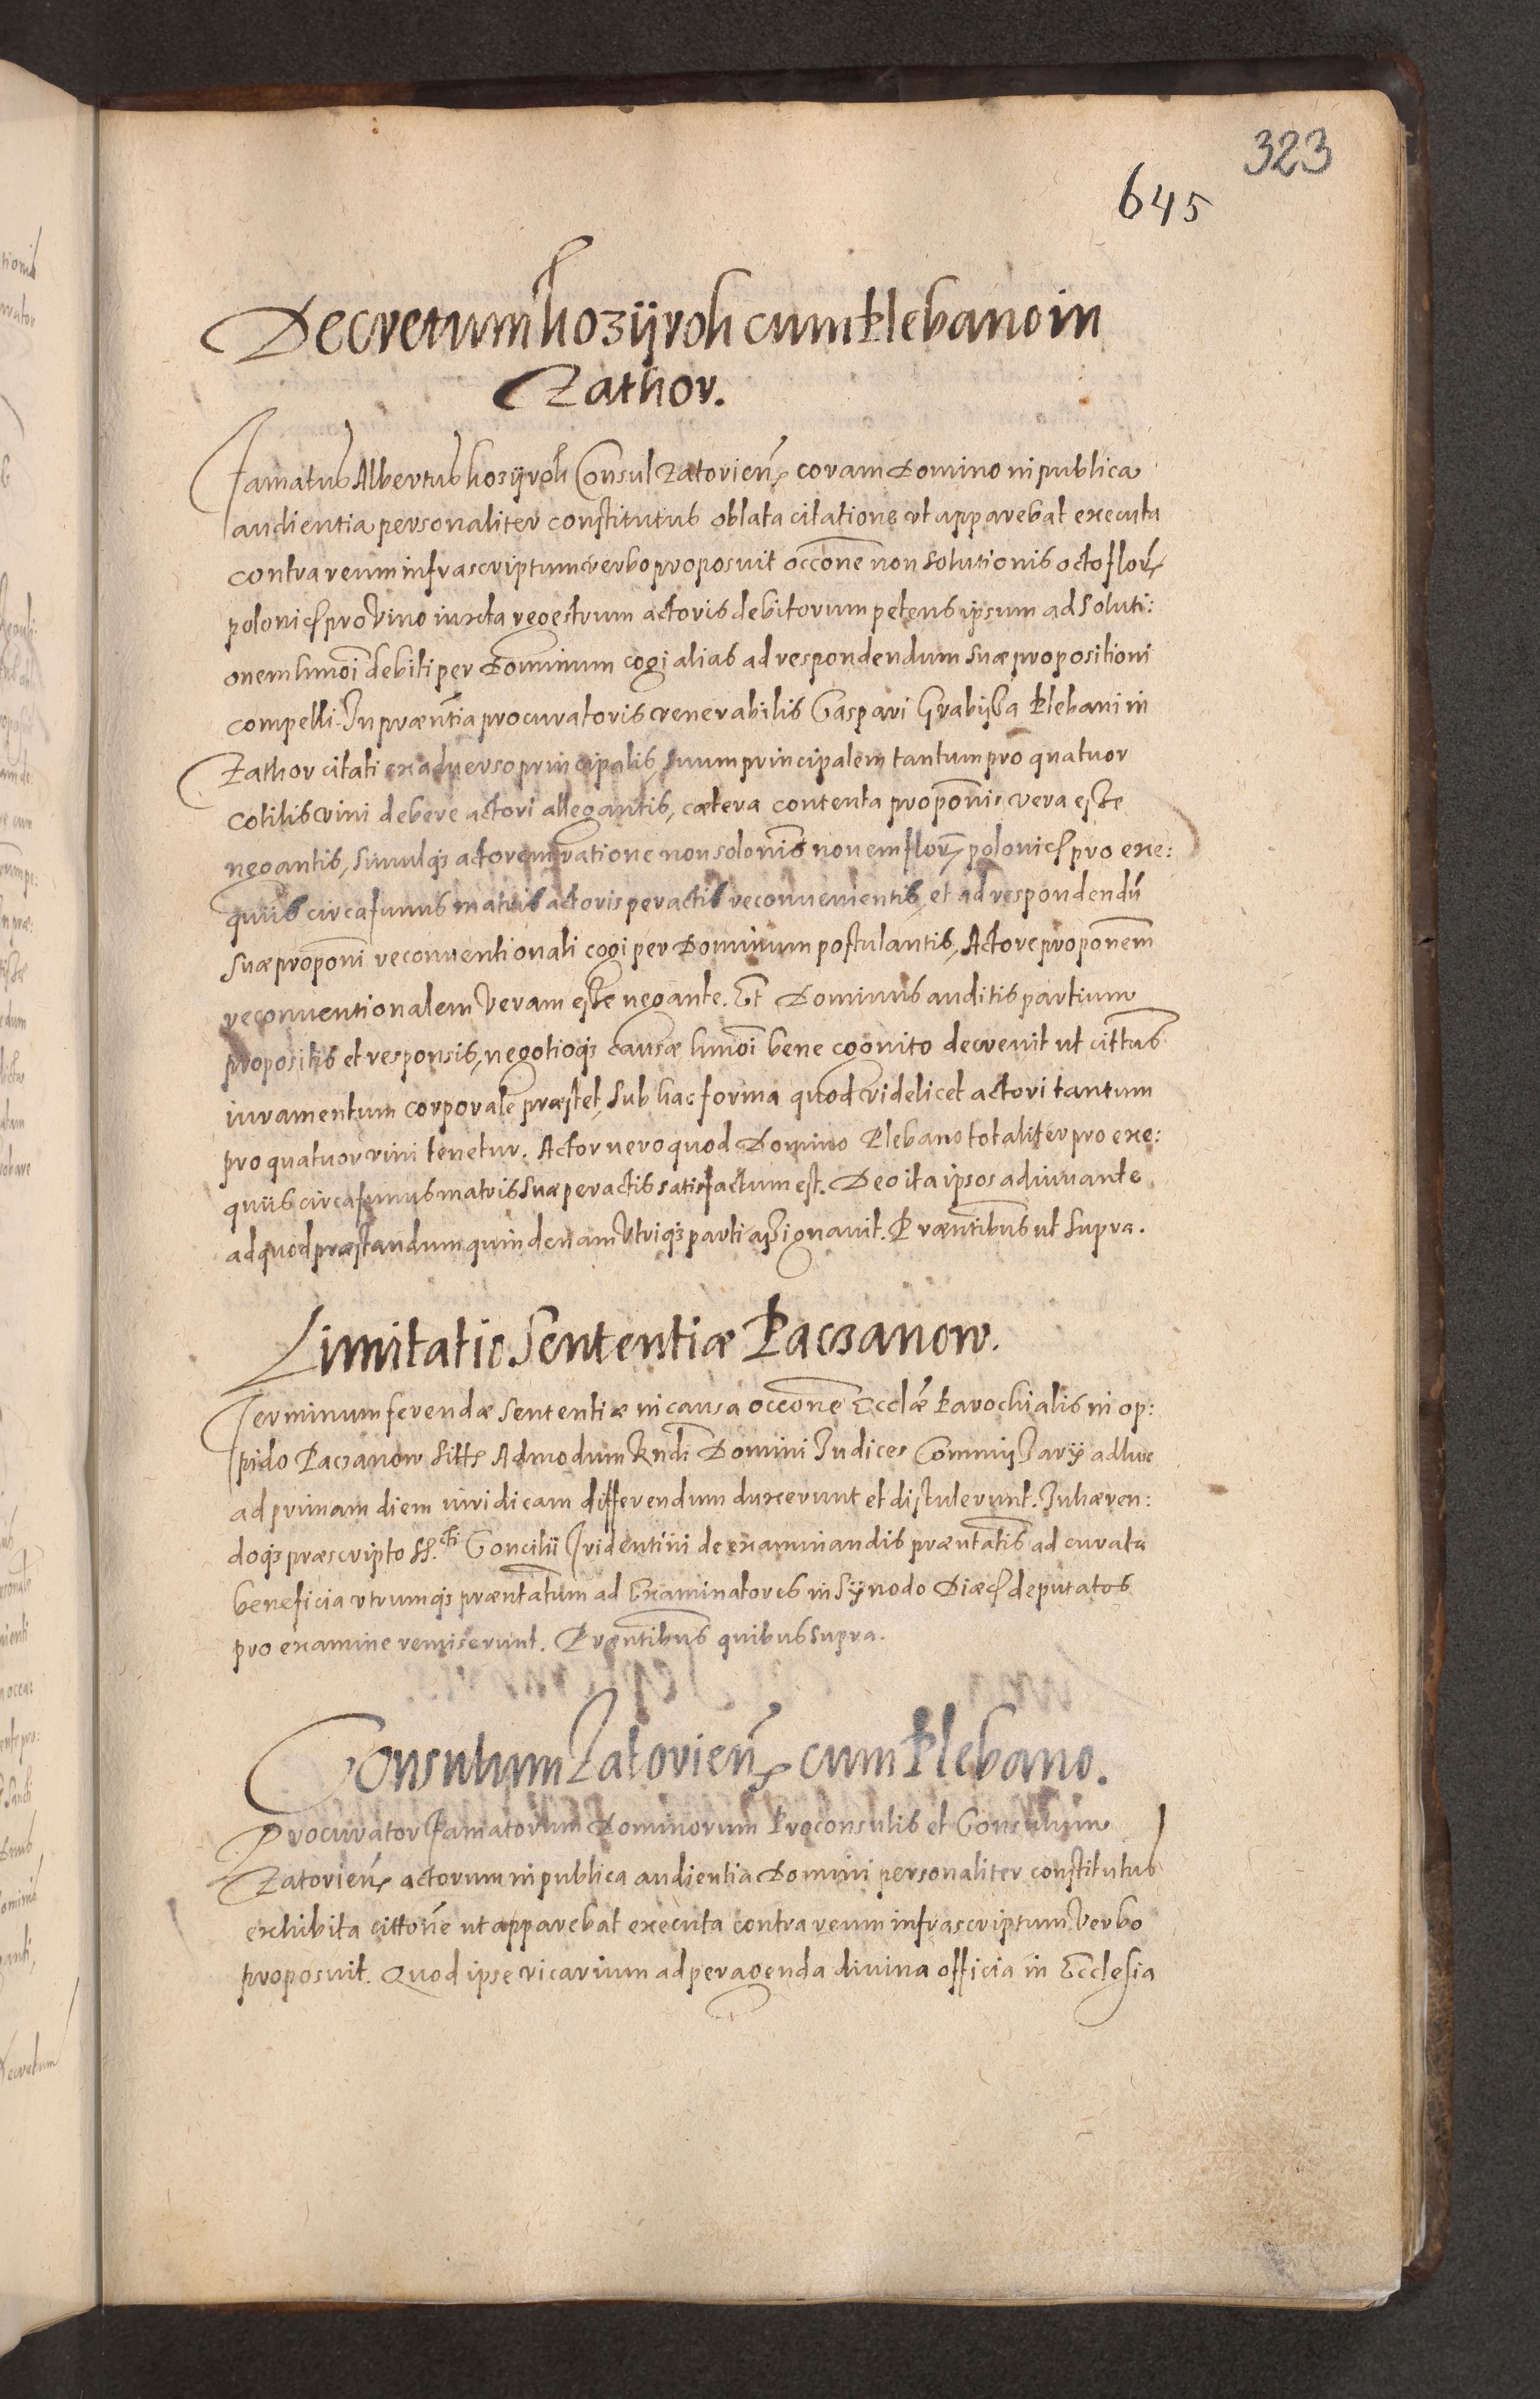 323
645
Decretum Kozÿroh cum Plebano in
Zathor.
Famatus Albertus Kozÿroh Consul Zatorien̄ coram Domino in publica
audientia personaliter constitutus oblata citatione vt apparebat executa
contra reum infrascriptum verbo proposuit occōne non solutionis octo flor̄
polonic̄ pro vino iuxta regestrum actoris debitorum petens ipsum ad soluti:
onem hmōi debiti per Dominum cogi alias ad respondendum suæ propositioni
compelli. In præn̄tia procuratoris venerabilis Caspari Plebani in
Zathor citati ex aduerso principalis, suum principalem tantum pro quatuor
cotilis vini debere actori allegantis, cætera contenta propōnis vera esse
negantis, simulq; actorem ratione non solōnis nouem flor̄ polonic̄ pro exe:
quiis circa funus matris actoris peractis reconuenientis, et ad respondendū
suæ propōni reconuentionali cogi per Dominum postulantis, Actore propōnem
reconuentionalem veram esse negante. Et Dominus auditis partium
propositis et responsis, negotioq; causæ hmōi bene cognito decreuit ut citt̄us
iuramentum corporale præstet, sub hac forma quod videlicet actori tantum
pro quatuor vini tenetur. Actor uero quod Domino Plebano totaliter pro exe:
quiis circa funus matris suæ peractis satisfactum est. Deo ita ipsos adiuuante
ad quod præstandum quindenam vtriq; parti assignauit. Præn̄tibus ut supra.
Limitatio Sententiæ Paczanow.
Terminum ferendæ sententiæ in causa occōne Eccl̄æ Parochialis in op:
pido Paczanow Admodum Rndi Domini Iudices Commissarij adhuc
ad primam diem iuridicam differendum duxerunt et distulerunt. Inhæren:
doq; præscripto Concilii Tridentini de examinandis præn̄tatis ad curata
beneficia vtrumq; præn̄tatum ad Examinatores in Sÿnodo Diæc̄ deputatos
pro examine remiserunt. Præn̄tibus quibus supra.
Consulum Zatorien̄ cum Plebano.
Procurator famatorum Dominorum Proconsulis et Consulum
Zatorien̄ actorum in publica audientia Domini personaliter constitutus
exhibita cittōne ut apparebat executa contra reum infrascriptum verbo
proposuit. Quod ipse vicarium ad peragenda diuina officia in Ecclesia